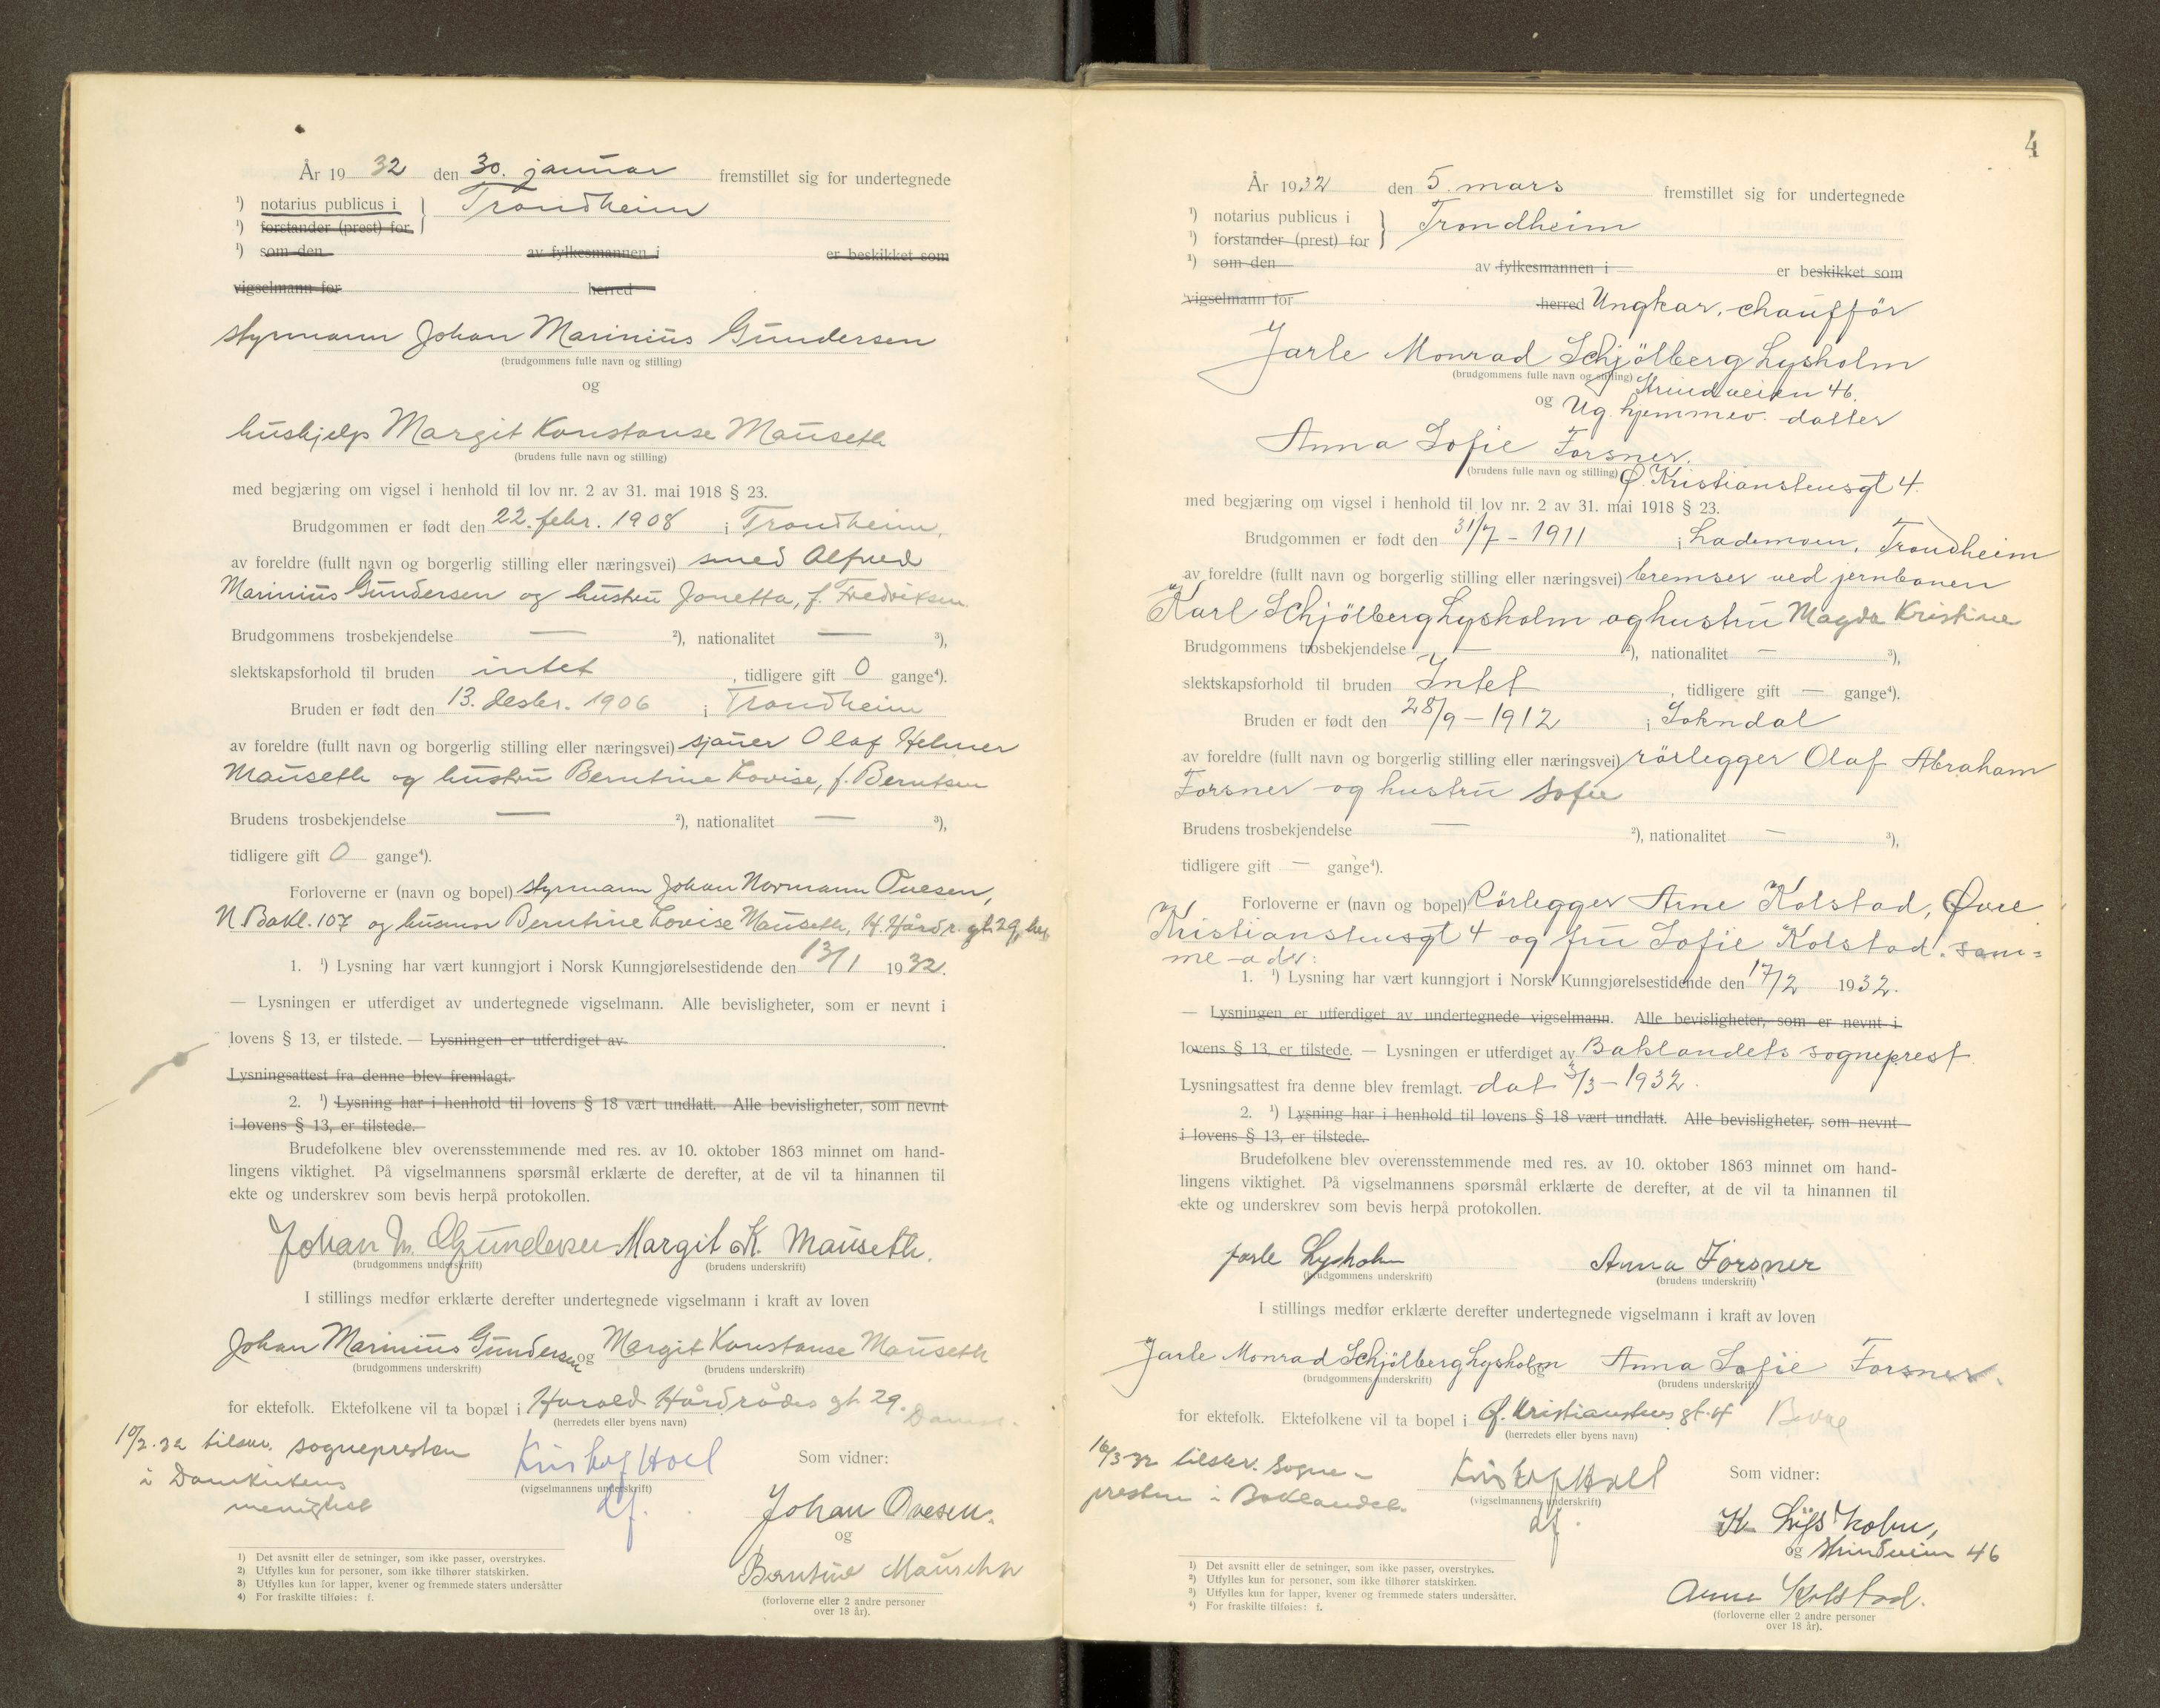 År 1932 den 30. januar fremstillet sig for undertegnede
¹) notarius publicus i } Trondheim
¹) forstander (prest) for
¹) som den av fylkesmannen i er beskikket som
vigselmann for herred
styrmann Johan Marinius Gundersen
(brudgommens fulle navn og stilling)
og
hushjelp Margit Konstanse Mauseth
(brudens fulle navn og stilling)
med begjæring om vigsel i henhold til lov nr. 2 av 31. mai 1918 § 23.
Brudgommen er født den 22. febr. 1908 i Trondheim,
av foreldre (fullt navn og borgerlig stilling eller næringsvei) smed Alfred
Marinius Gundersen og hustru Jonetta, f. Fredriksen
Brudgommens trosbekjendelse — ²), nationalitet — ³),
slektskapsforhold til bruden intet, tidligere gift 0 gange⁴).
Bruden er født den 13. desbr. 1906 i Trondheim
av foreldre (fullt navn og borgerlig stilling eller næringsvei) sjauer Olaf Helmer
Mauseth og hustru Berntine Lovise, f. Berntsen
Brudens trosbekjendelse — ²), nationalitet — ³),
tidligere gift 0 gange⁴).
Forloverne er (navn og bopel) styrmann Johan Normann Ovesen,
N. Bakl. 107 og husmor Berntine Lovise Mauseth, H. Hårdr. gt. 29, her
1. ¹) Lysning har vært kunngjort i Norsk Kunngjørelsestidende den 13/1 1932.
— Lysningen er utferdiget av undertegnede vigselmann. Alle bevisligheter, som er nevnt i
lovens § 13, er tilstede. — Lysningen er utferdiget av
Lysningsattest fra denne blev fremlagt.
2. ¹) Lysning har i henhold til lovens § 18 vært undlatt. Alle bevisligheter, som nevnt
i lovens § 13, er tilstede.
Brudefolkene blev overensstemmende med res. av 10. oktober 1863 minnet om hand-
lingens viktighet. På vigselmannens spørsmål erklærte de derefter, at de vil ta hinannen til
ekte og underskrev som bevis herpå protokollen.
Johan M. Gundersen Margit K. Mauseth.
(brudgommens underskrift) (brudens underskrift)
I stillings medfør erklærte derefter undertegnede vigselmann i kraft av loven
Johan Marinius Gundersen og Margit Konstanse Mauseth
(brudgommens underskrift) (brudens underskrift)
for ektefolk. Ektefolkene vil ta bopæl i Harald Hårdrådes gt. 29.
(herredets eller byens navn)
10/2.32 tilskr. sognepresten
i Domkirkens
menighet
Kristof Hoel
(vigselmannens underskrift)
df.
Som vidner:
Johan Ovesen.
og
Berntine Mauseth
(forloverne eller 2 andre personer
over 18 år).
1) Det avsnitt eller de setninger, som ikke passer, overstrykes.
2) Utfylles kun for personer, som ikke tilhører statskirken.
3) Utfylles kun for lapper, kvener og fremmede staters undersåtter
4) For fraskilte tilføies: f.
4
År 1932 den 5. mars fremstillet sig for undertegnede
¹) notarius publicus i } Trondheim
¹) forstander (prest) for
¹) som den av fylkesmannen i er beskikket som
vigselmann for herred Ungkar, chauffør
Jarle Monrad Schjölberg Lysholm
(brudgommens fulle navn og stilling) Strindveien 46.
og Ug. hjemmev. datter
Anna Sofie Forsner.
(brudens fulle navn og stilling) Ø. Kristianstensgt 4.
med begjæring om vigsel i henhold til lov nr. 2 av 31. mai 1918 § 23.
Brudgommen er født den 31/7 - 1911 i Lademoen, Trondheim
av foreldre (fullt navn og borgerlig stilling eller næringsvei) bremser ved jernbanen
Karl Schjölberg Lysholm og hustru Magda Kristine
Brudgommens trosbekjendelse — ²), nationalitet — ³),
slektskapsforhold til bruden Intet, tidligere gift — gange⁴).
Bruden er født den 28/9 - 1912 i Sokndal
av foreldre (fullt navn og borgerlig stilling eller næringsvei) rörlegger Olaf Abraham
Forsner og hustru Sofie
Brudens trosbekjendelse — ²), nationalitet — ³),
tidligere gift — gange⁴).
Forloverne er (navn og bopel) Rörlegger Arne Kolstad, Øvre
Kristianstensgt 4 og fru Sofie Kolstad. sam=
me adr:
1. ¹) Lysning har vært kunngjort i Norsk Kunngjørelsestidende den 17/2 1932.
— Lysningen er utferdiget av undertegnede vigselmann. Alle bevisligheter, som er nevnt i
lovens § 13, er tilstede. — Lysningen er utferdiget av Baklandets sogneprest
Lysningsattest fra denne blev fremlagt. dat 3/3 - 1932.
2. ¹) Lysning har i henhold til lovens § 18 vært undlatt. Alle bevisligheter, som nevnt
i lovens § 13, er tilstede.
Brudefolkene blev overensstemmende med res. av 10. oktober 1863 minnet om hand-
lingens viktighet. På vigselmannens spørsmål erklærte de derefter, at de vil ta hinannen til
ekte og underskrev som bevis herpå protokollen.
Jarle Lysholm Anna Forsner
(brudgommens underskrift) (brudens underskrift)
I stillings medfør erklærte derefter undertegnede vigselmann i kraft av loven
Jarle Monrad Schjölberg Lysholm og Anna Sofie Forsner.
(brudgommens underskrift) (brudens underskrift)
for ektefolk. Ektefolkene vil ta bopel i Ø. Kristianstens gt. 4
(herredets eller byens navn)
16/3-32 tilskr. sogne-
presten i Baklandet.
Kristof Hoel
(vigselmannens underskrift)
df.
Som vidner:
K. Lysholm,
og Strindveien 46
Arne Kolstad.
(forloverne eller 2 andre personer
over 18 år).
¹) Det avsnitt eller de setninger, som ikke passer, overstrykes.
²) Utfylles kun for personer, som ikke tilhører statskirken.
³) Utfylles kun for lapper, kvener og fremmede staters undersåtter.
⁴) For fraskilte tilføies: f.